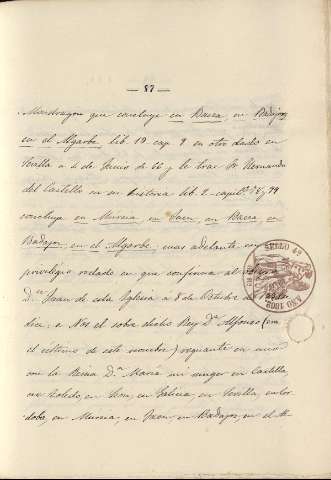 — 87 —
Mondragon que concluye en Baeza, en Badajoz,
en el Algarbe lib. 19 cap. 9 en otro dado en
Sevilla a 4 de Junio de 66 y le trae Dn Hernando
del Castillo en su historia lib. 2 capito 78, 79
concluye en Murcia, en Jaen, en Baeza, en
Badajoz, en el Algarbe; mas adelante en
privilegio rodado en que confirma al
Dn Juan de esta Iglesia a 8 de Octubre de
dice: a Nos el sobre dicho Rey Dn Alfonso (em
el ultimo de este nombre) regnante en uno
con la Reina Dª Maria mi muger en Castilla,
en Toledo, en Leon, en Galicia, en Sevilla, en Cor
doba, en Murcia, en Jaen, en Badajoz, en el Al-
SELLO 4º
AÑO 1862